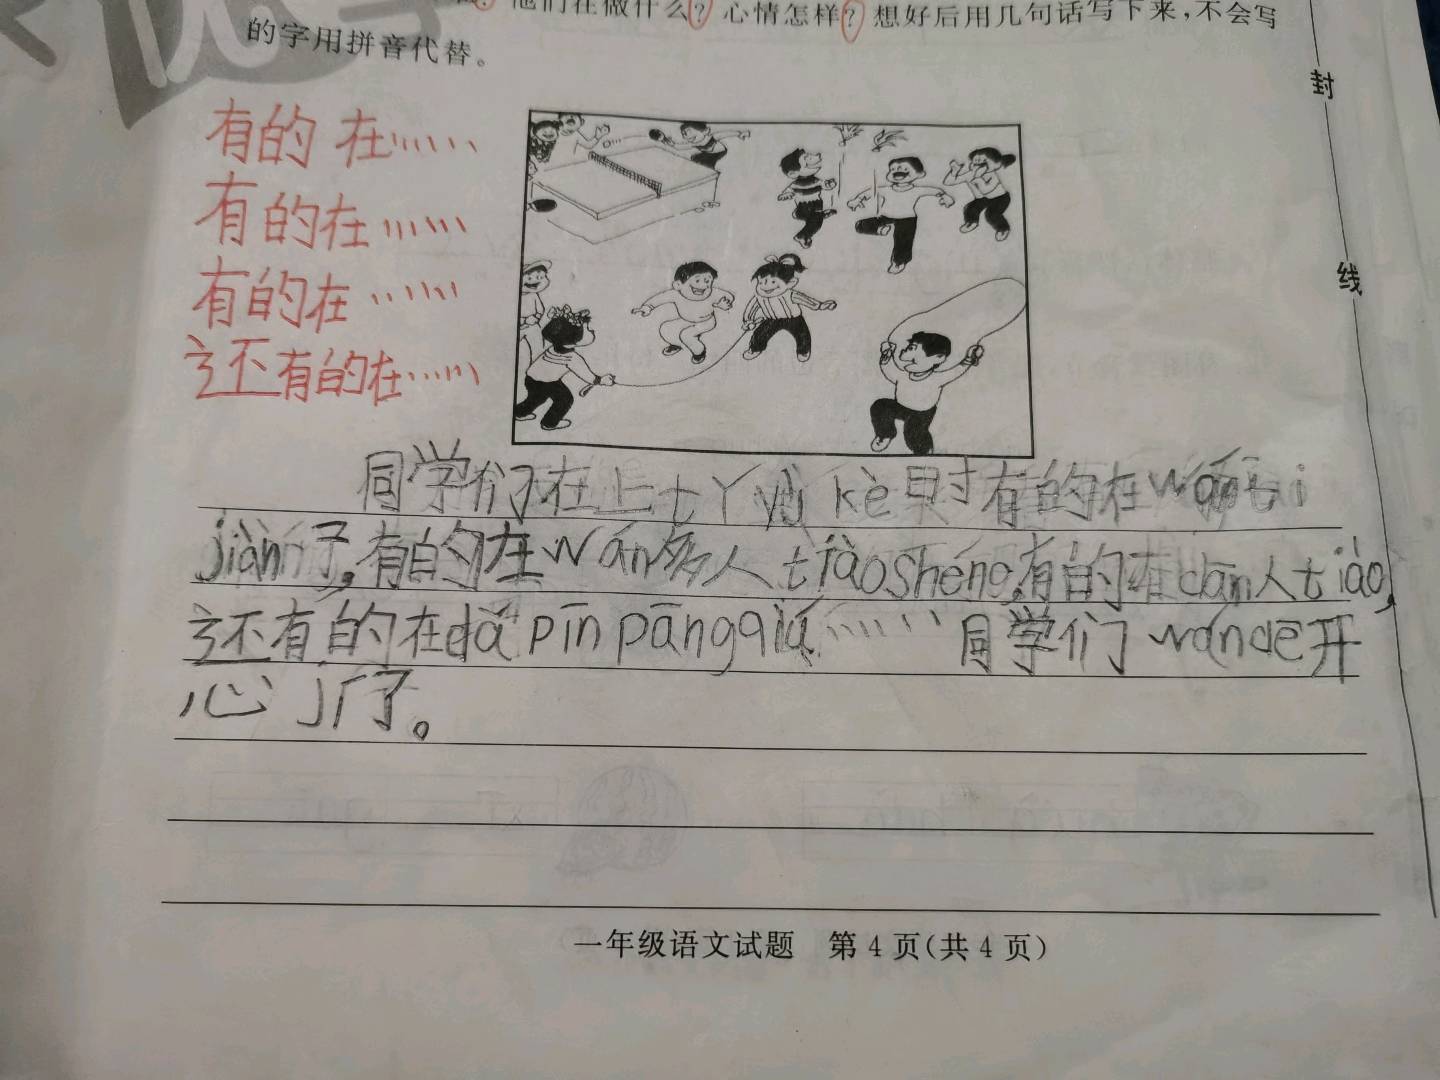 他们在做什么？心情怎样？想好后用几句话写下来，不会写
的字用拼音代替。
封
线
有的 在……
有的在……
有的在……
还有的在……
同学们在上tǐ yù kè 时有的在wán tī
jiàn子，有的在wán多人tiào shéng，有的在dān人tiào，
还有的在dǎ pīn pāng qiú……同学们wán dē开
心jí了。
一年级语文试题 第4页(共4页)